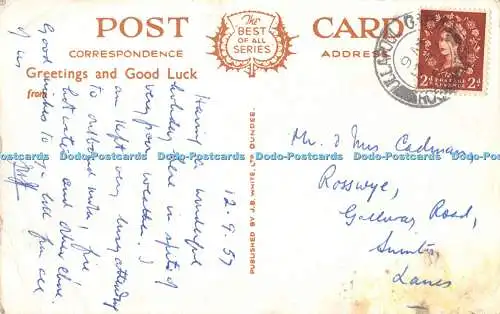 POST CARD
The
BEST
OF ALL
SERIES
CORRESPONDENCE
ADDRESS
Greetings and Good Luck
from
12.9.57
Having a wonderful
holiday here in spite of
very poor weather. I
am kept very busy attending
to outboard motor, fire
hot water and other chores.
Good wishes to you both from all
of us
PUBLISHED BY J.B. WHITE LTD. DUNDEE
Mr. & Mrs Cadman
Rosswye,
Galloway Road,
Lancs
POSTAGE
REVENUE
2D 2D
D-Postcards D-Postcards D-Postcards D-Postcards D-Postcards D-Postcards